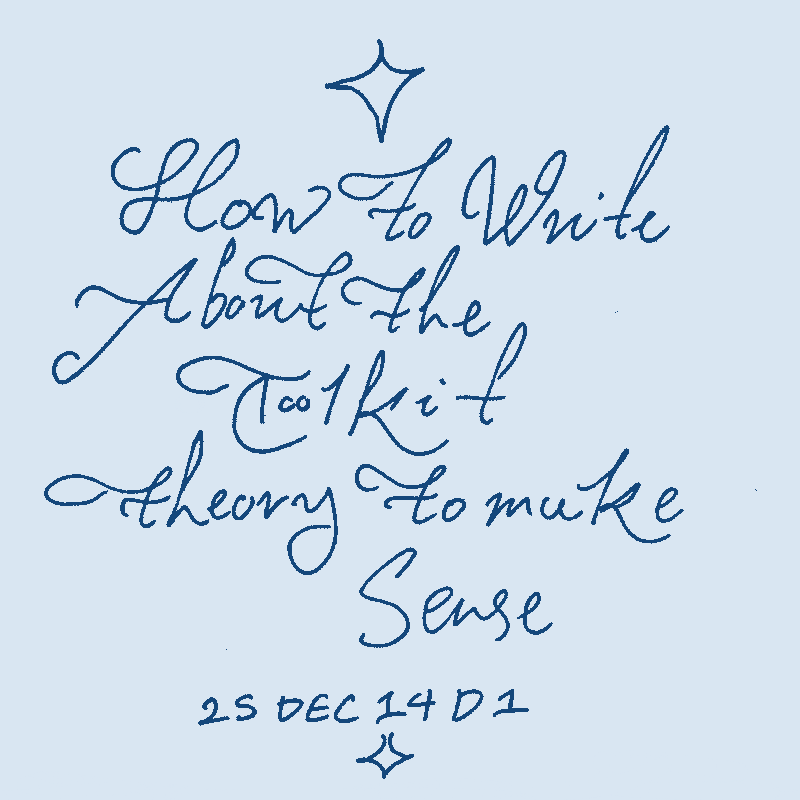 How To Write
About The
Toolkit
Theory To make
Sense
25 DEC 14 D1